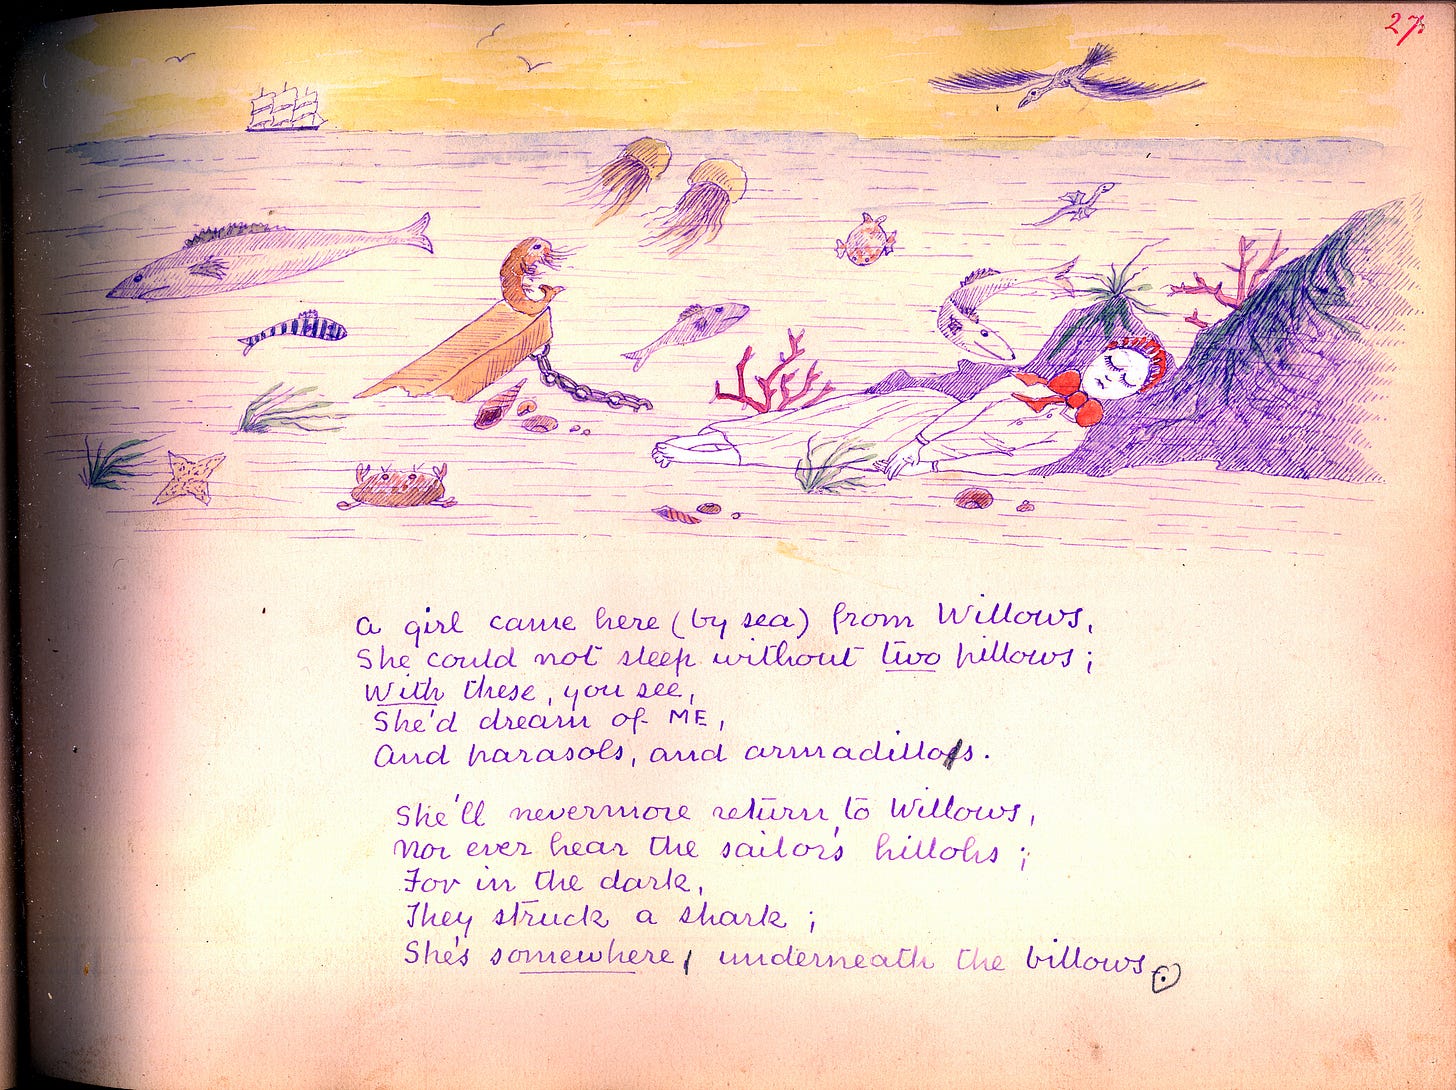 27.
A girl came here (by sea) from Willows,
She could not sleep without two pillows;
With these, you see,
She'd dream of ME,
And parasols, and armadillos.
She'll nevermore return to Willows,
Nor ever hear the sailor's hillohs;
For in the dark,
They struck a shark;
She's somewhere, underneath the billows.